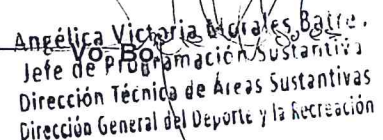 Angélica Victoria Morales Batre.
Vo. Bo.
Jefe de Programación Sustantiva
Dirección Técnica de Áreas Sustantivas
Dirección General del Deporte y la Recreación